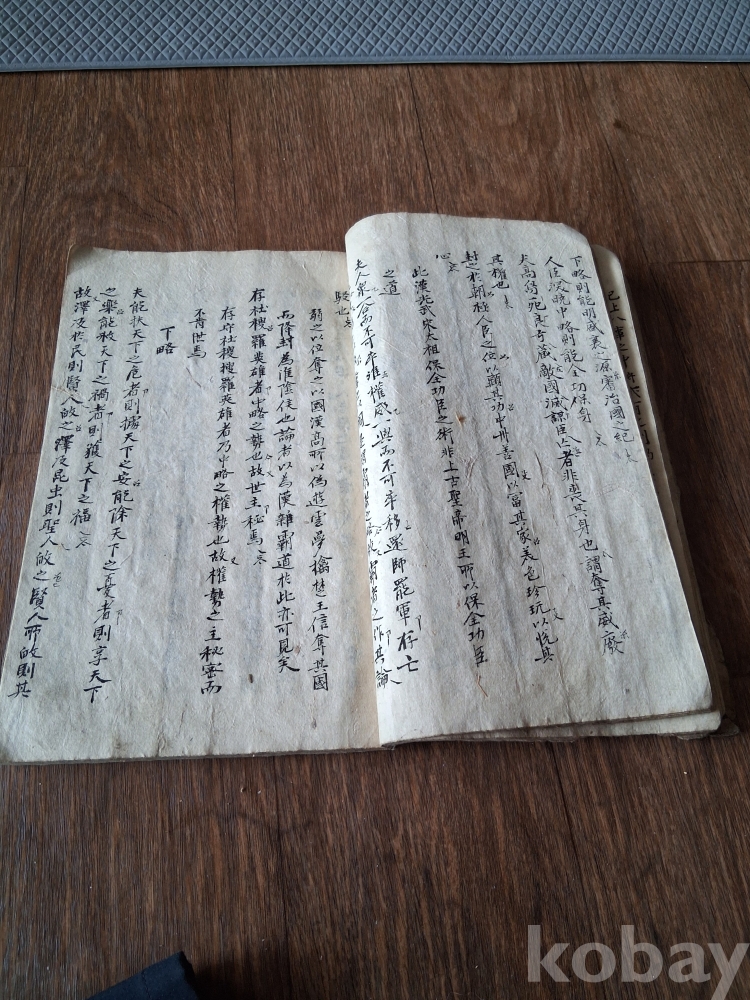 下略則能明盛衰之源審治國之紀
人臣深晓中略則能全功保身
夫高鳥死良弓藏敵國滅謀臣亡亡者非喪其身也謂奪其威廢
其權也
封之於朝極人臣之位以顯其功中州善國以富其家美色珍玩以悅其
心
此漢光武宋太祖保全功臣之術非上古聖帝明王所以保全功臣
之道
夫人衆一合而不可卒離權威一與而不可卒移還師罷軍存亡
弱之以位奪之以國漢高所以偽遊雲夢擒楚王信奪其國
而降封為淮陰侯也論者以為漢雜霸道於此亦可見矣
存社稷羅英雄者中略之勢也故世主秘焉
存斿社稷羅英雄者乃中略之權勢也故權勢之主秘密而
不肯世焉
下略
夫能扶天下之危者則據天下之安能除天下之憂者則享天下
之樂能救天下之禍者則獲天下之福
故澤及於民則賢人敀之澤及昆虫則聖人敀之賢人所敀則其
kobay